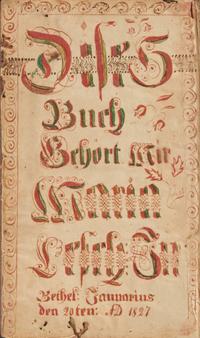 Dises
Buch
Gehört Mir
Maria
Lesch In
Bethel: Januarius
den 20ten: AD 1827